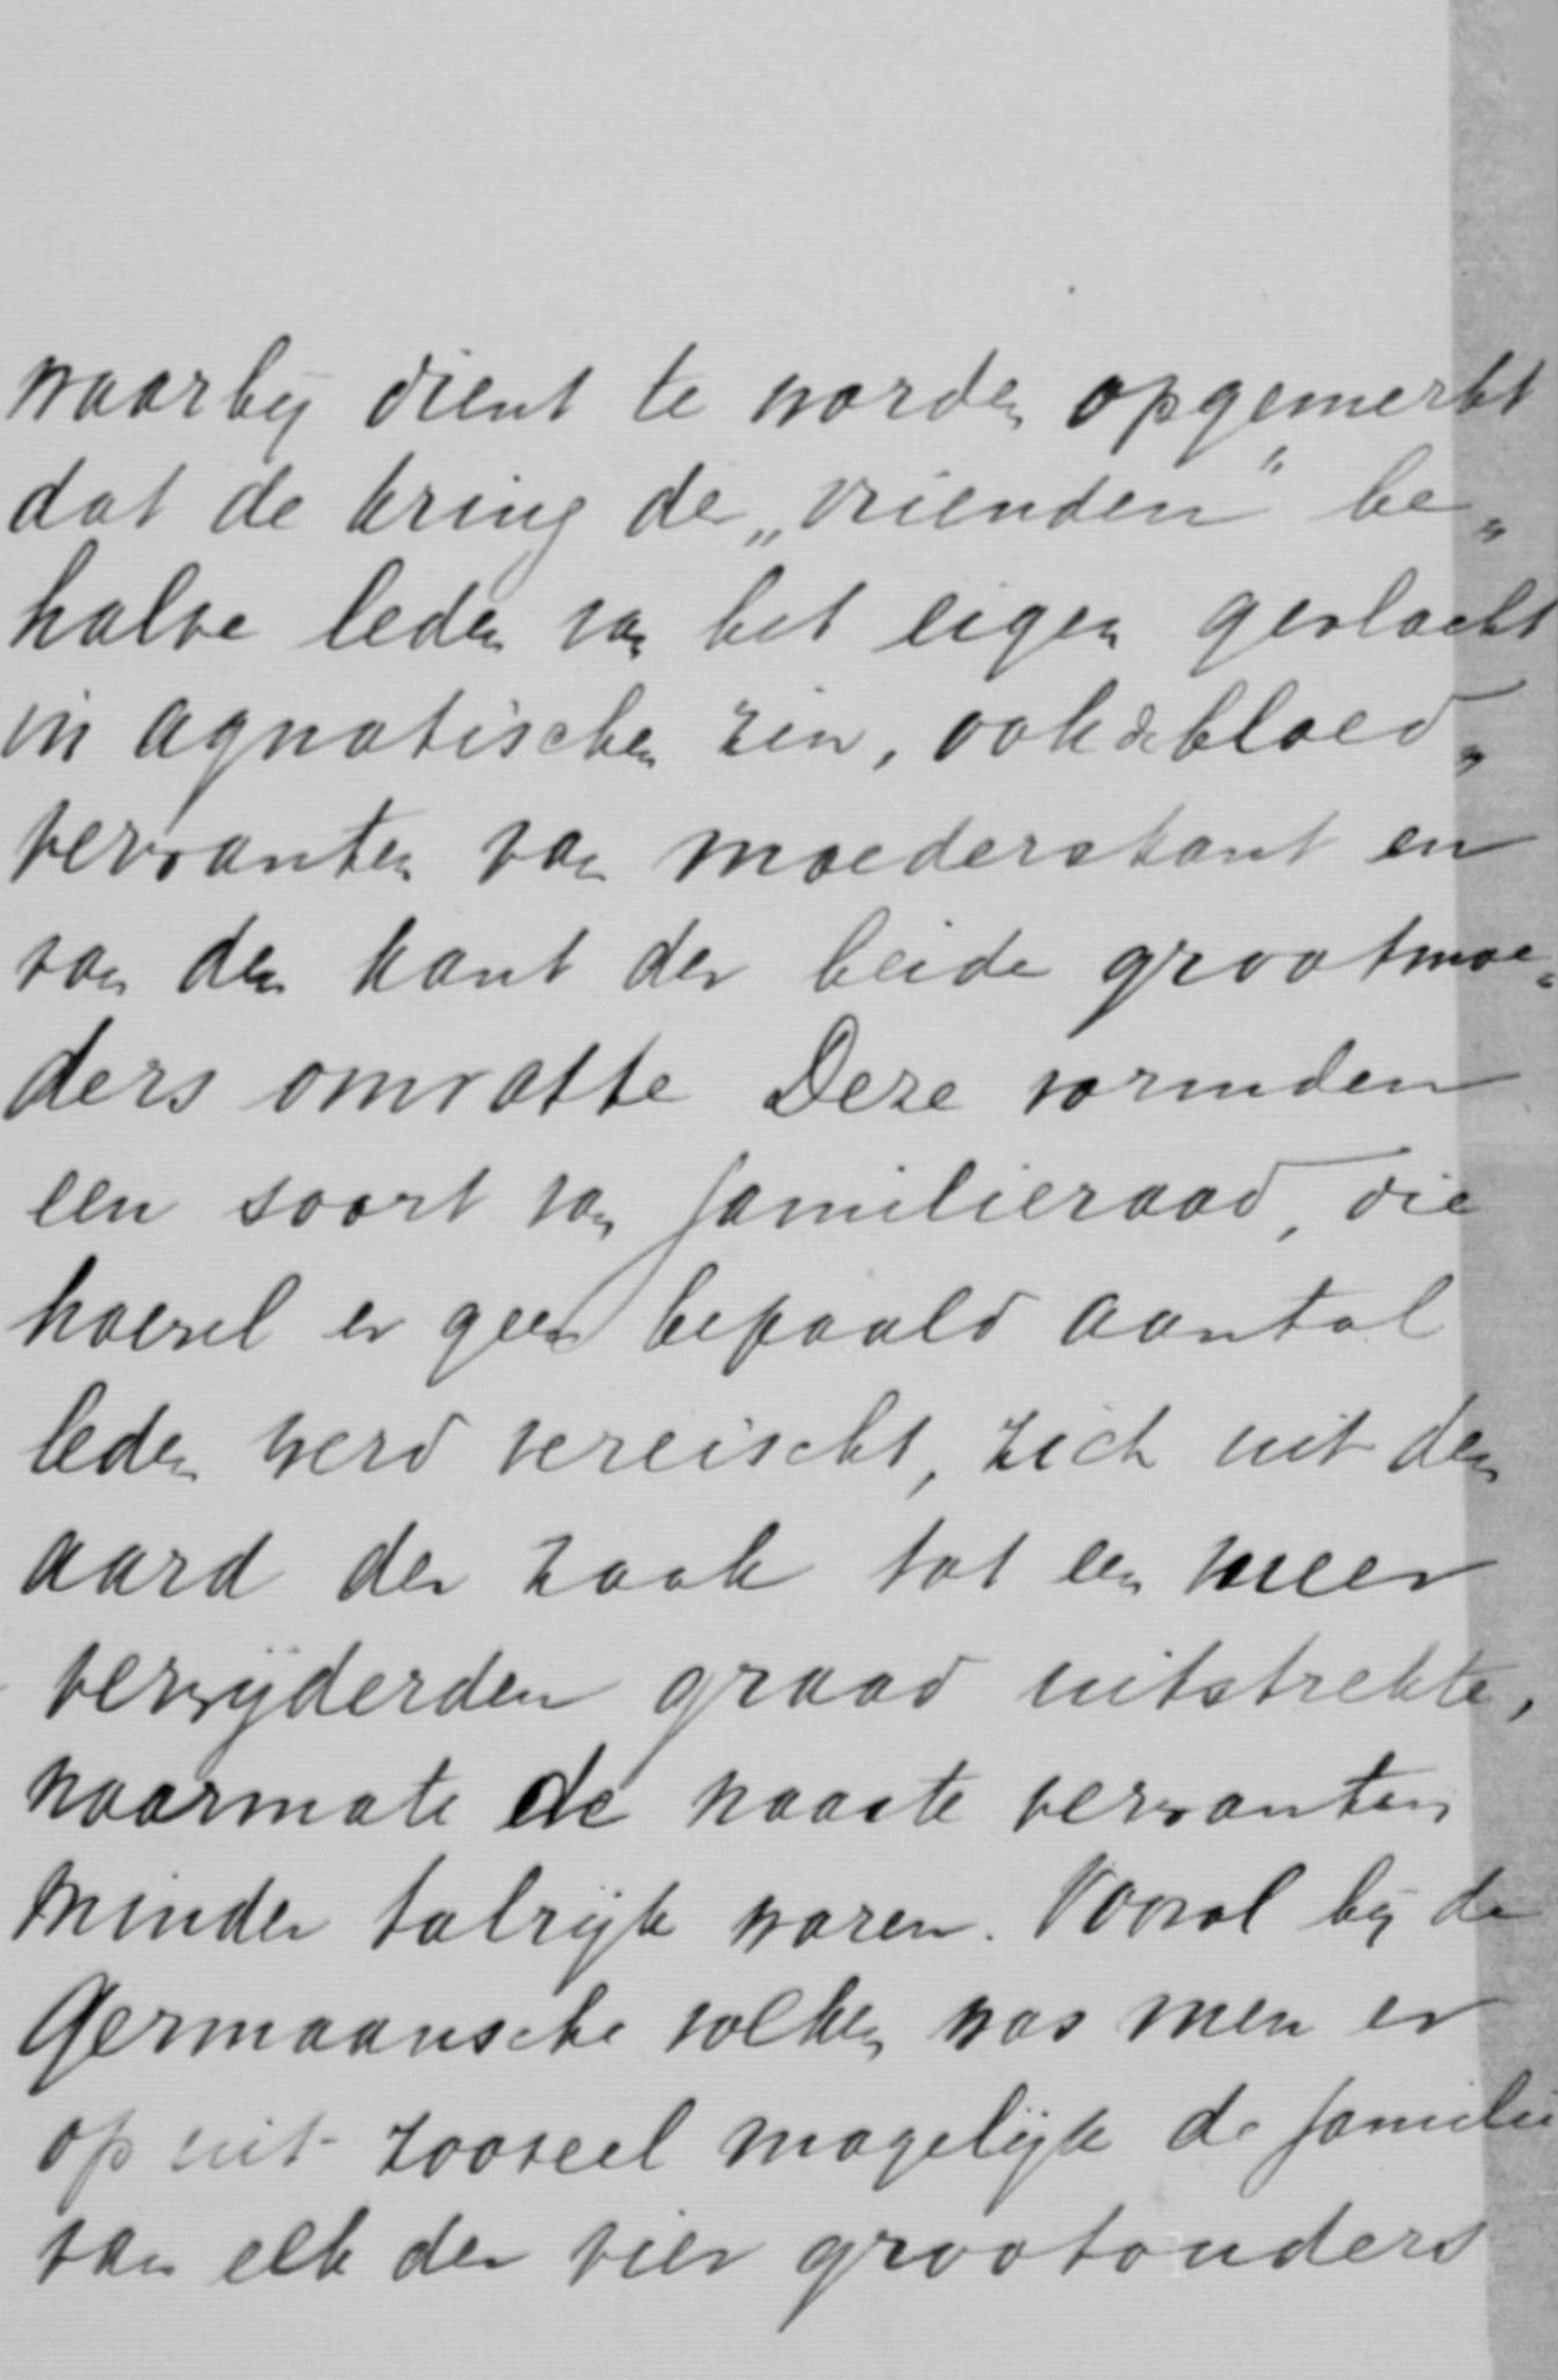 waarbij dient te worden opgemerkt
dat de kring der „vrienden" be„
halve leden van het eigen geslacht
in agnatischen zin, ook de bloed„
verwanten van moederskant en
van den kant der beide grootmoe„
ders omvatte Deze vormden
een soort van familieraad, die
hoewel er geen bepaald aantal
leden werd vereischt, zich uit den
aard der zaak tot een meer
verwijderden graad uitstrekte,
naarmate de naaste verwanten
minder talrijk waren. Vooral bij de
Germaansche volken was men er
op uit zooveel mogelijk de familie
van elk der vier grootouders